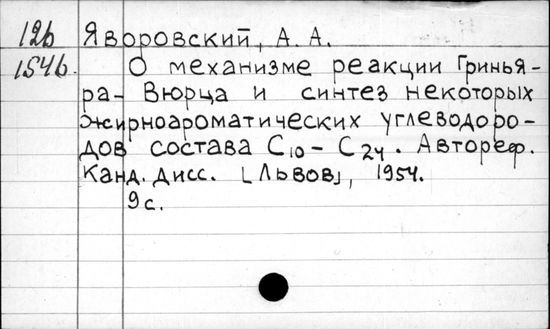 126 Яворовский, А. А.
1546. О механизме реакции Гринья-
ра-Вюрца и синтез некоторых
жирноароматических углеводоро-
дов состава C10 – C24. Автореф.
Канд. дисс. [Львов], 1954.
9 с.